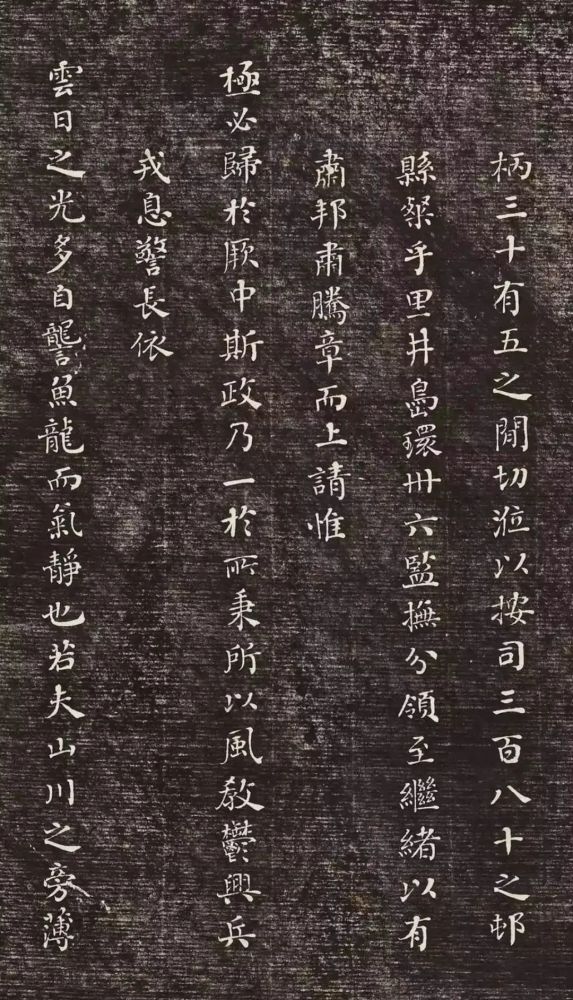 柄三十有五之間切涖以按司三百八十之邨
縣棃乎里井島環卅六監撫分領至繼緒以有
肅邦肅騰章而上請惟
極必歸於厥中斯政乃一於所秉所以風教鬱興兵
戎息警長依
雲日之光多自讋魚龍而氣靜也若夫山川之旁薄